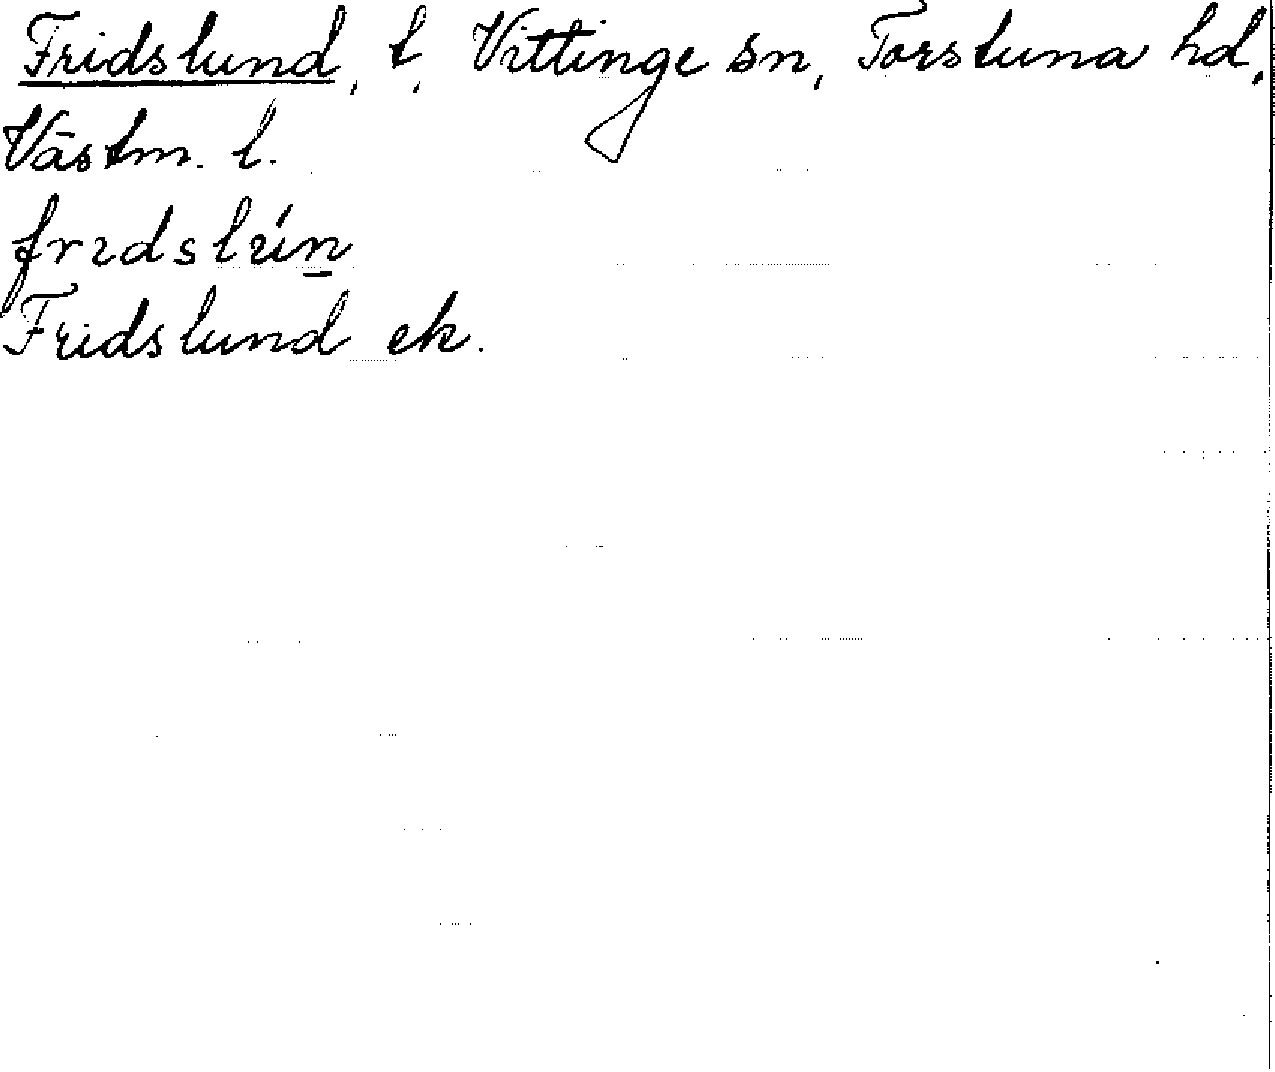 Fridslund, t, Vittinge sn, Torstuna hd,
Västm. l.
Fridslund ek.